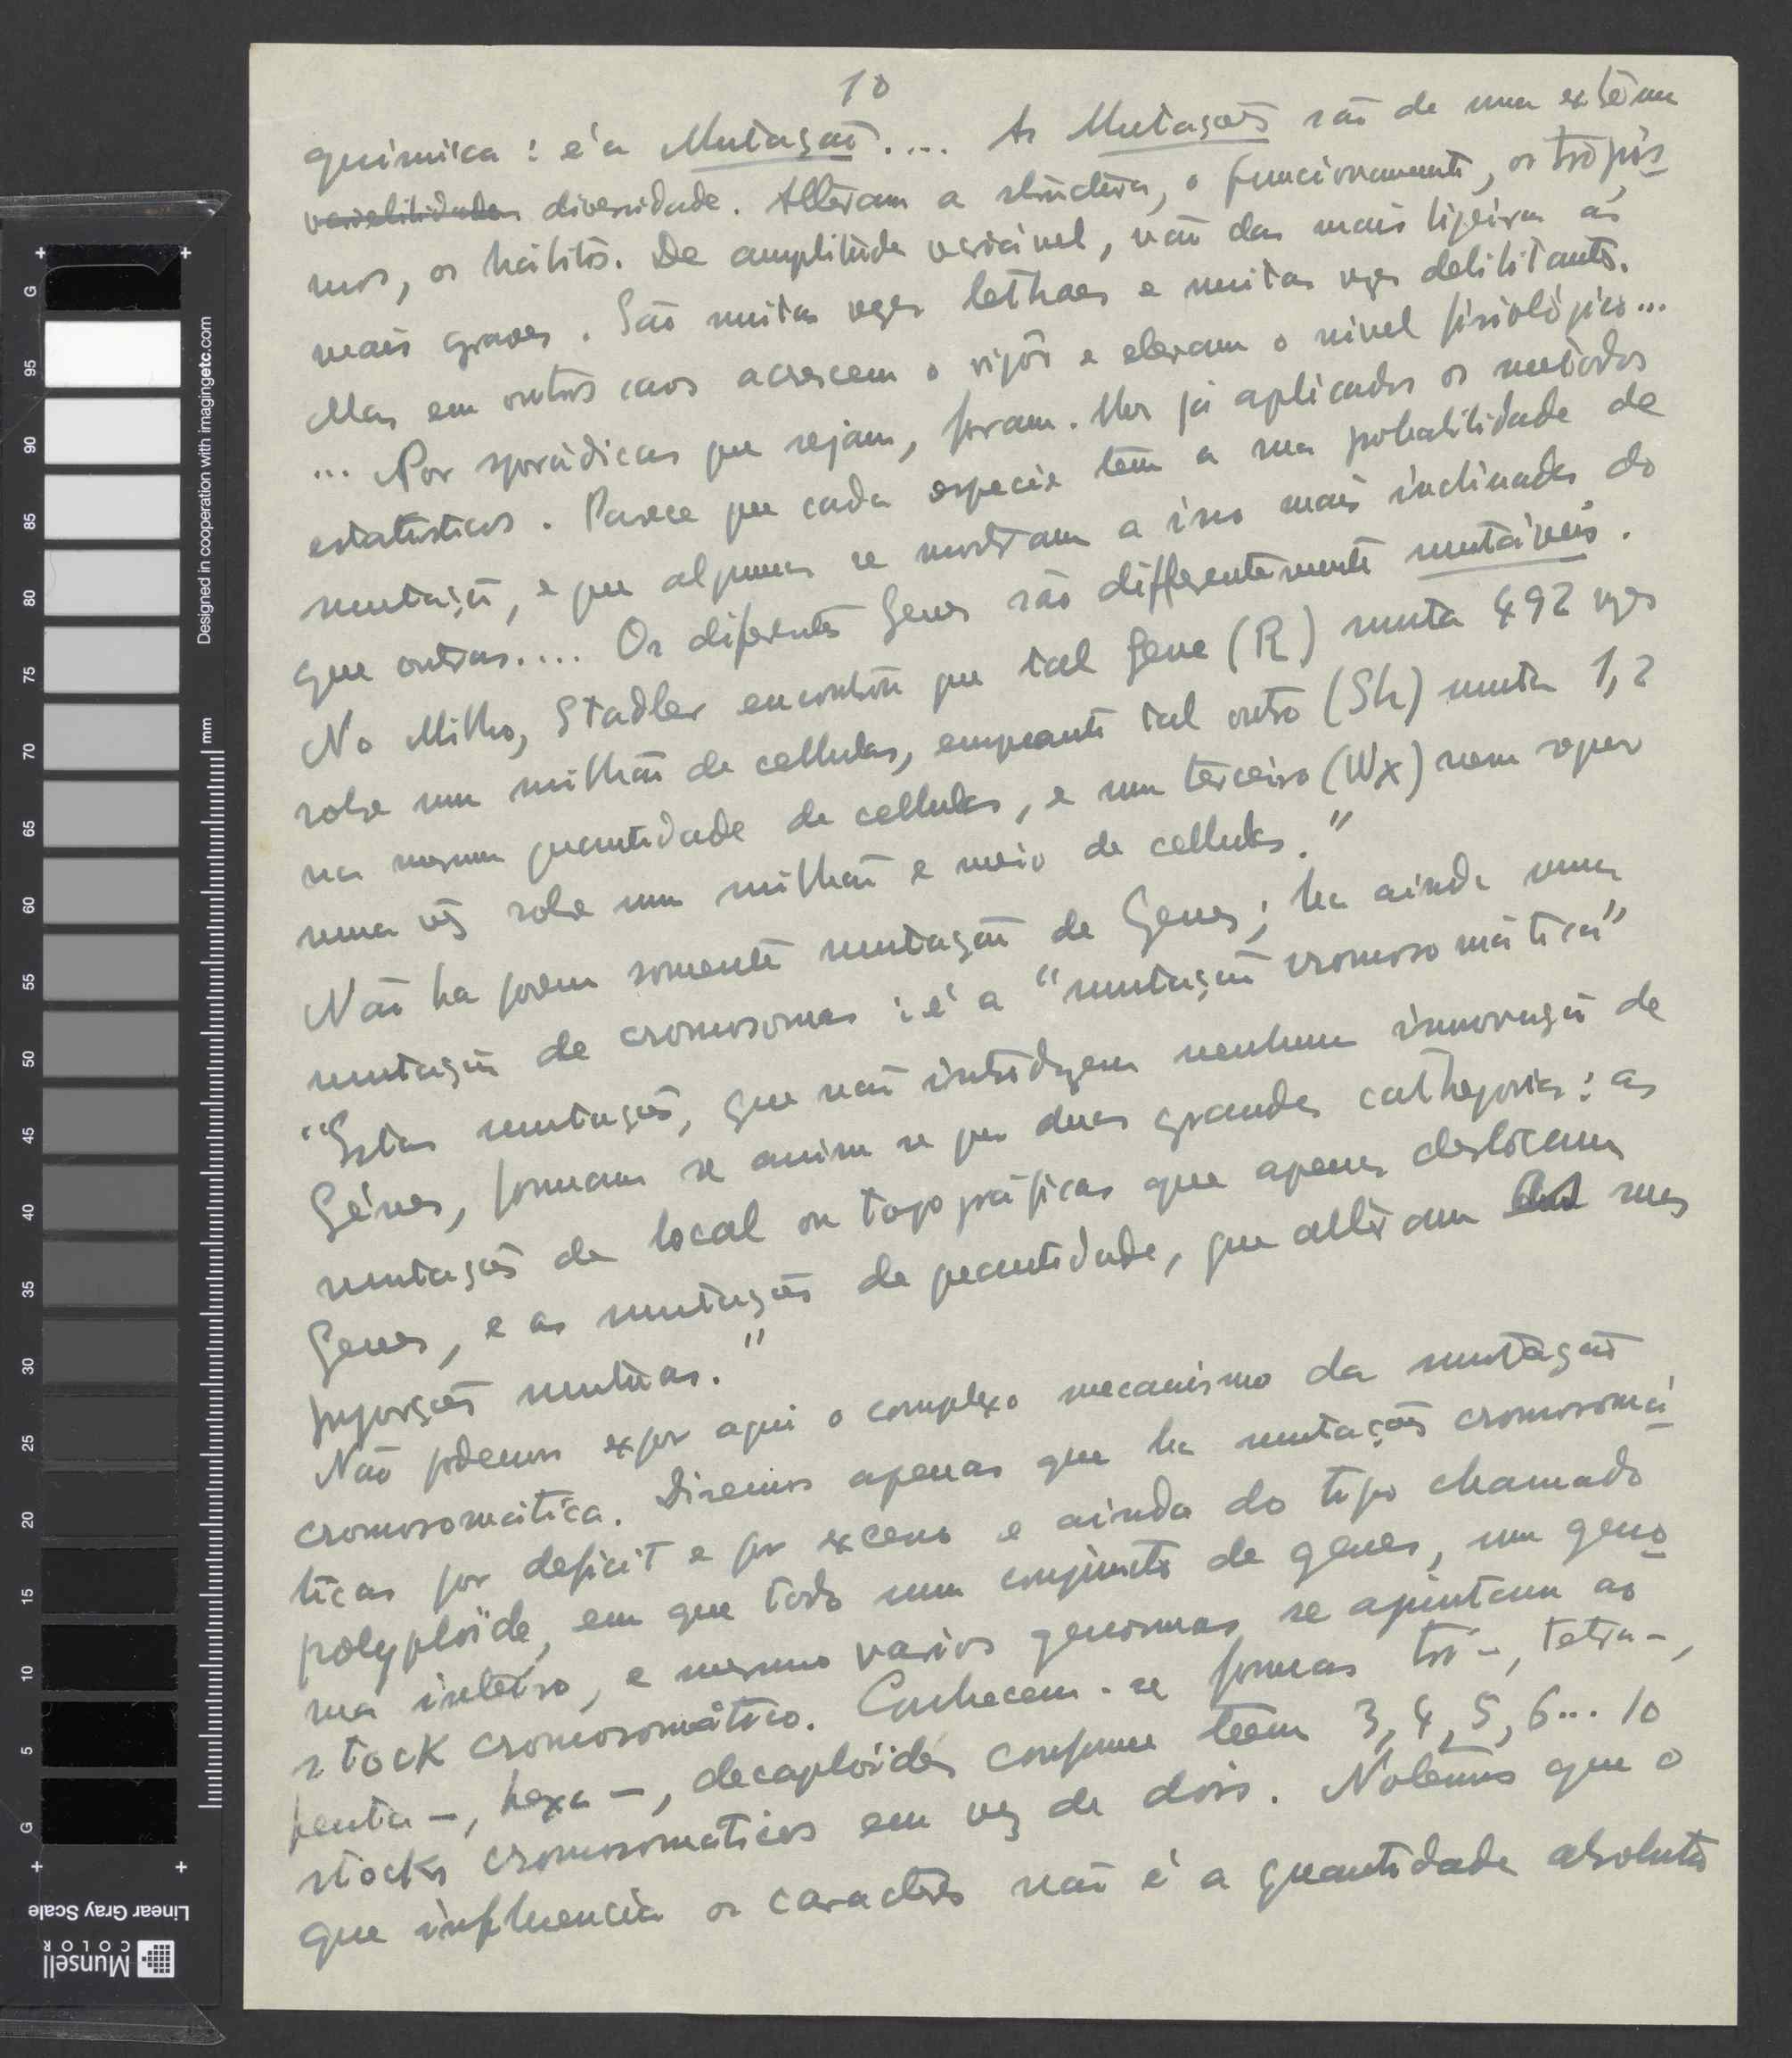 10
quimica: é a Mutação.... As Mutações são de uma extêma
variabilidade diversidade. Alteram a structura, o funcionamento, os tropis
mos, os habitos. De amplitude variável, vão das mais ligeiras ás
mais graves. São muitas vezes lethaes e muitas vezes debilitantes.
Mas em outros casos acrescem o vigôr e elevam o nivel fisiológico...
... Por sporádicas que sejam, foram-lhes já aplicados os metodos
estatisticos. Parece que cada especie tem a sua probabilidade de
mutação, e que algumas se mostram a isso mais inclinadas do
que outras.... Os diferentes Genes são differentemente mutáveis.
No Milho, Stadler encontrou que tal Gene (R) muta 492 vezes
sobre um milhão de cellulas, emquanto tal outro (Sh) muta 1,2
na mesma quantidade de cellulas, e um terceiro (Wx) nem siquer
uma vez sobre um milhão e meio de cellulas."
Não ha porem somente mutação de Genes; ha ainda uma
mutação de cromosomas: é a "mutação cromosomática"
"Estas mutações, que não introduzem nenhuma innovação de
Génes, formam se assim se por duas grandes cathegorias: as
mutações de local ou topográficas que apenas deslocam
Genes, e as mutações de quantidade, que alteram suas
proporções mutuas."
Não podemos expor aqui o complexo mecanismo da mutação
cromosomática. Diremos apenas que ha mutações cromosomá
ticas por deficit e por excesso e ainda do tipo chamado
polyploïde, em que todo um conjunto de genes, um geno
ma inteiro, e mesmo varios genomas se ajuntam ao
stock cromosomático. Conhecem-se formas tri-, tetra-,
penta-, hexa-, decaploïdes conforme teem 3, 4, 5, 6... 10
stocks cromosomaticos em vez de dois. Notemos que o
que influencia os caractéres não é a quantidade absoluta
Designed in cooperation with imagingetc.com
mm
G
95
90
85
80
75
70
65
60
55
50
45
40
35
30
25
20
15
10
5
G
Linear Gray Scale
Munsell
COLOR